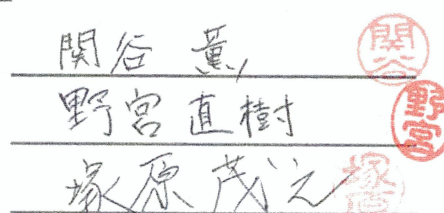 関谷 薫 関谷
野宮直樹 野宮
塚原茂之 塚原